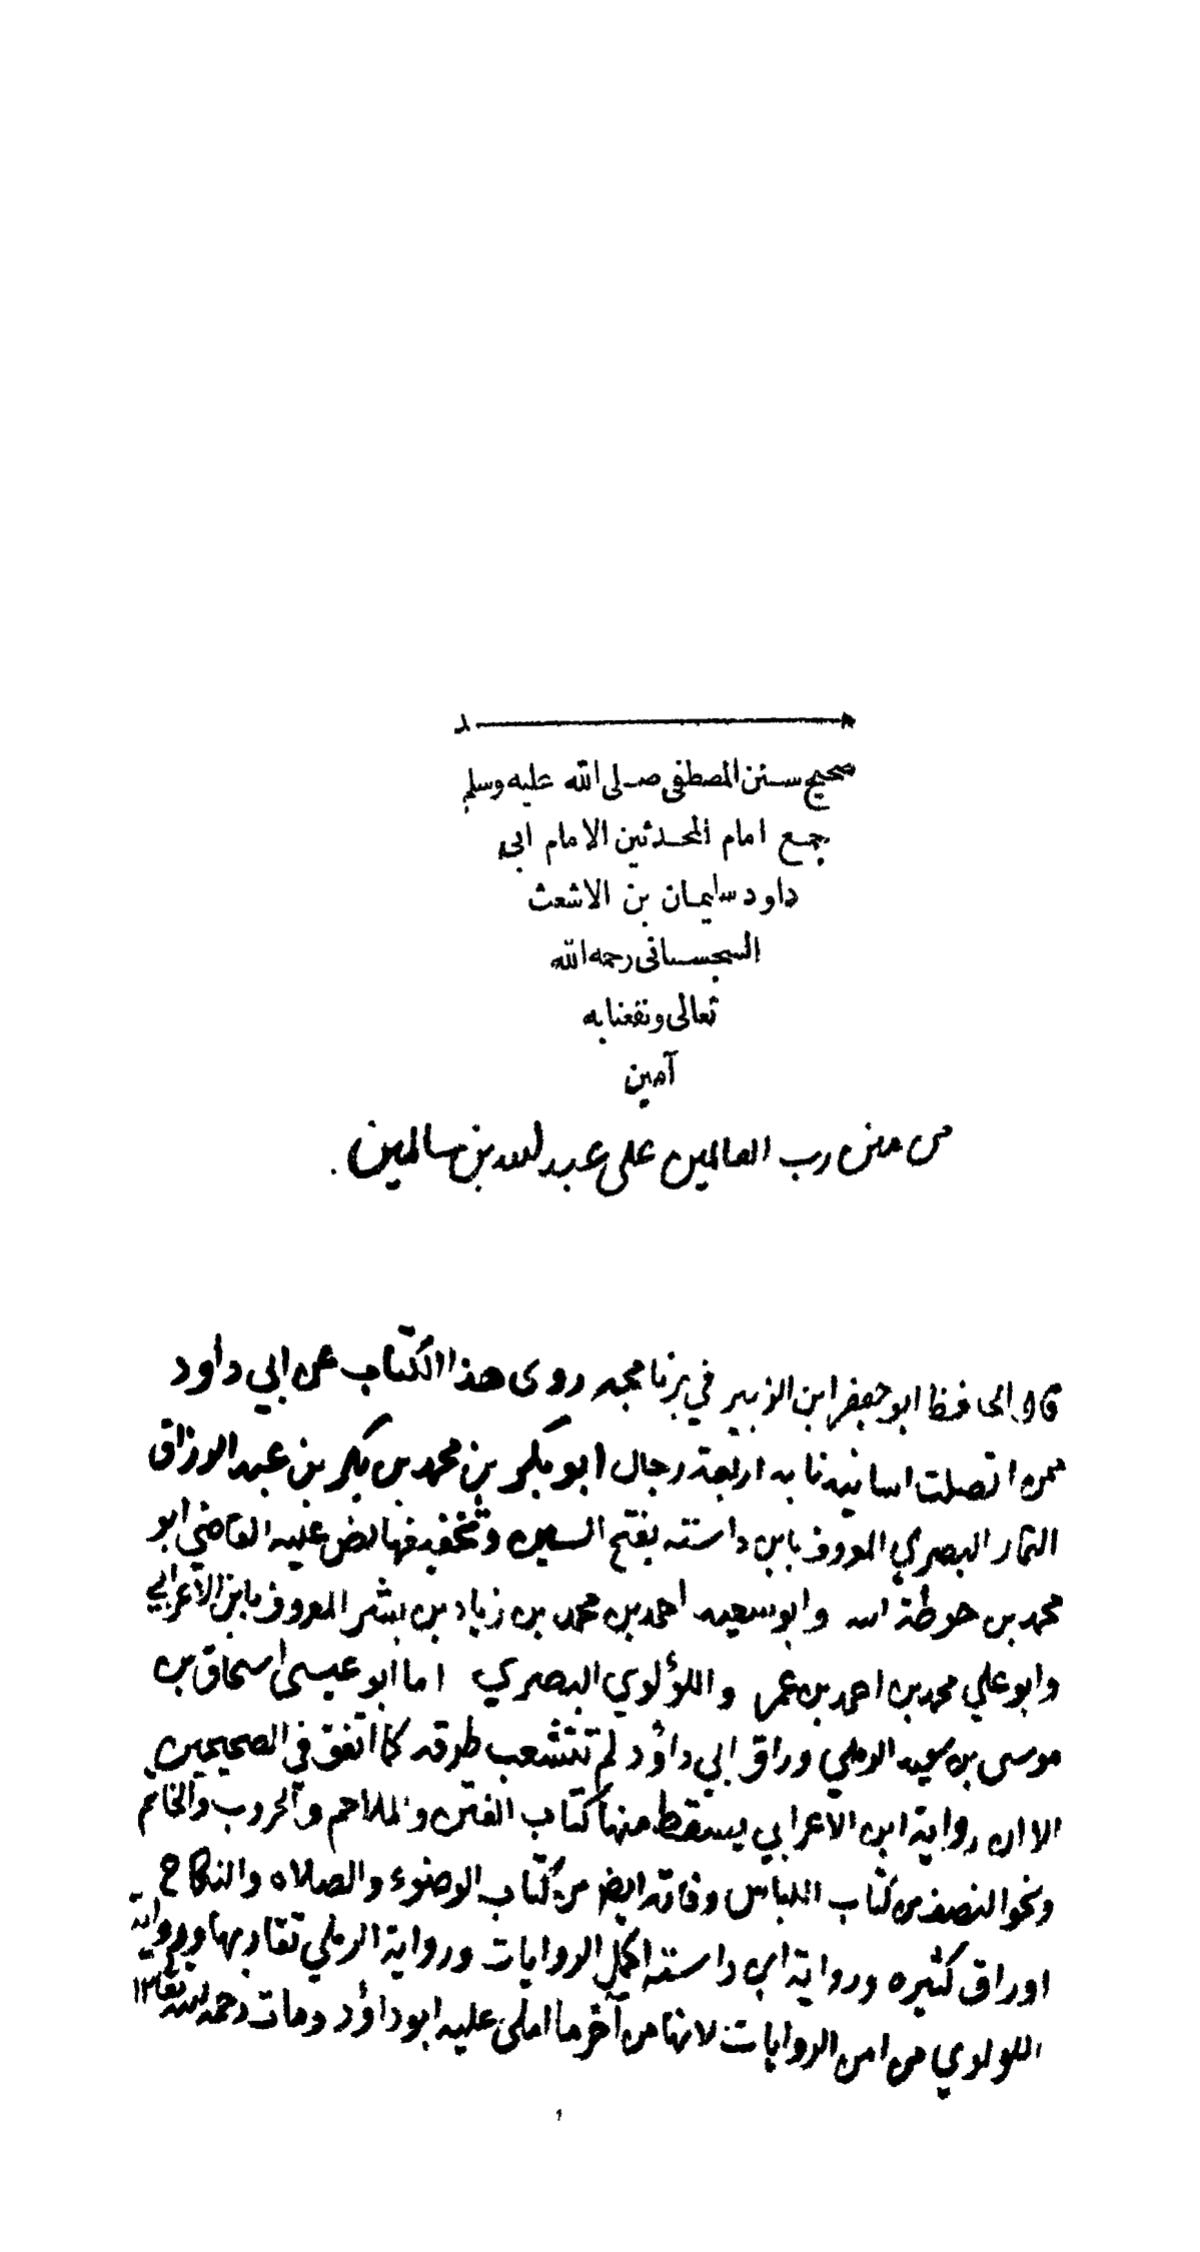 صحيح سنن المصطفى صلى الله عليه وسلم
جمع امام المحدثين الامام ابى
داود سليمان بن الاشعث
السجستانى رحمه الله
تعالى ونفعنا به
آمين
من منن رب العالمين على عبد الله بن سالمين .
قال الحافظ ابو جعفر ابن الزبير في برنامجه روى هذا الكتاب عن ابي داود
ممن اتصلت اسانيدنا به اربعة رجال ابو بكر بن محمد بن بكر بن عبد الرزاق
التمار البصري المعروف بابن داسته بفتح السين وتخفيفها نص عليه القاضي ابو
محمد بن حوطة الله وابو سعيد احمد بن محمد بن زياد بن بشر المعروف بابن الاعرابي
وابو علي محمد بن احمد بن عمر واللؤلوي البصري اما ابو عيسى اسحاق بن
موسى بن سعيد الرملي وراق ابي داؤد لم تتشعب طرقه كما اتفق في الصحيحين
الا ان رواية ابن الاعرابي يسقط منها كتاب الفتن والملاحم والحروب والخاتم
ونحو النصف من كتاب اللباس وفاته ايضا من كتاب الوضوء والصلاه والنكاح
اوراق كثيره ورواية ابن داسته اكمل الروايات ورواية الرملي تقاربها ورواية
اللولوي من امن الروايات لانها من آخر ما املى عليه ابو داؤد ومات رحمه الله
١